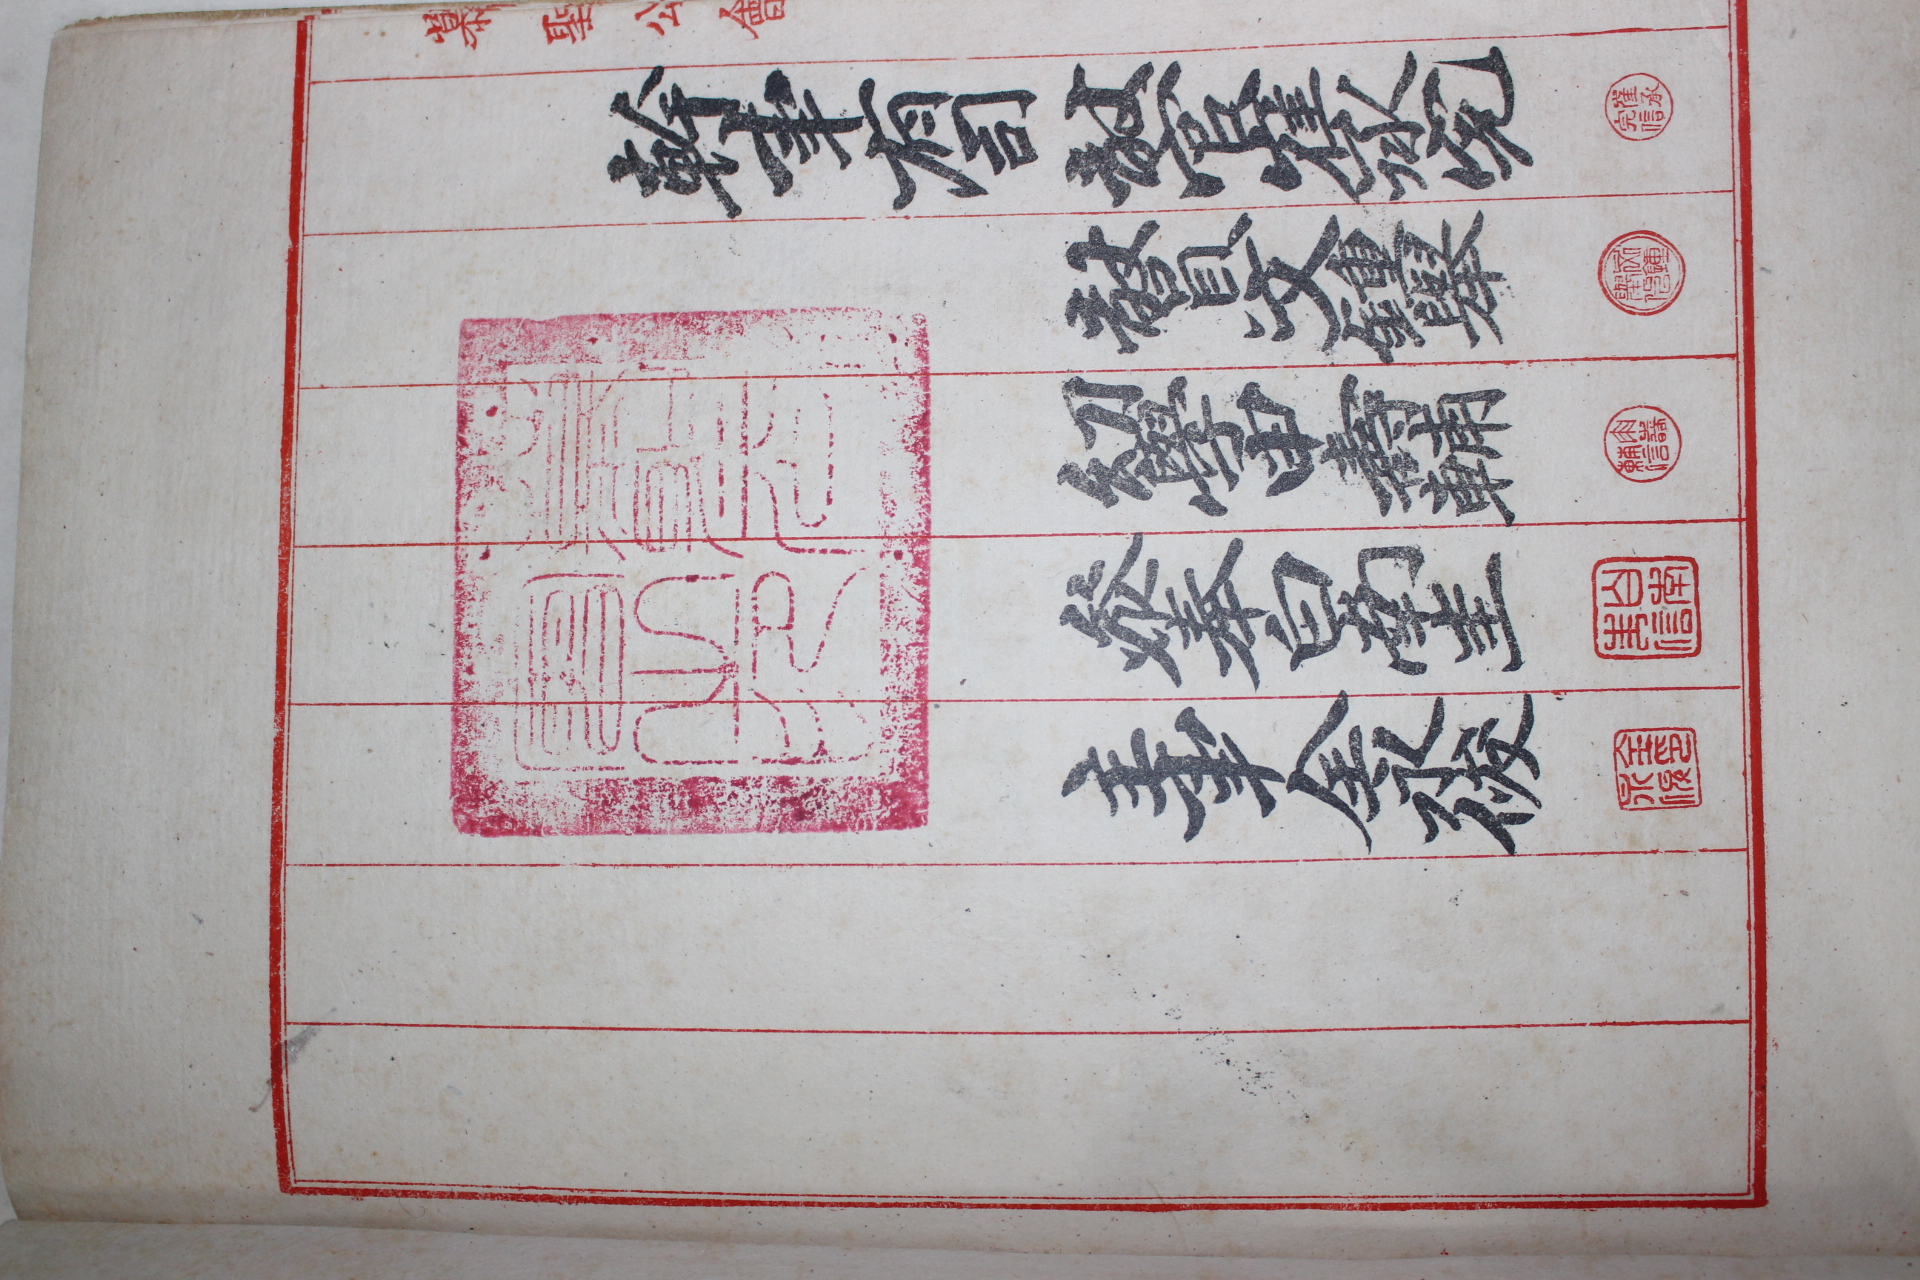 慕聖公會
幹事有司 敎官崔承完
敎員文鍾舉
幼學申壽輔
參奉白南圭
主事金永俊
慕聖公會之印
崔承完信
文鍾舉信
申壽輔信
白南圭信